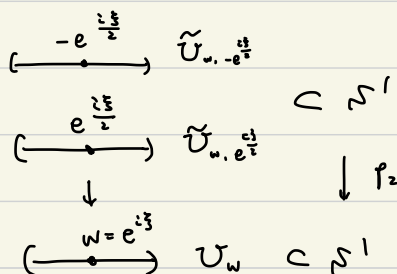 -e^{iξ/2} Ũ_{w, -e^{iξ/2}}
⊂ S^1
e^{iξ/2} Ũ_{w, e^{iξ/2}}
↓ ↓ p_2
w = e^{iξ} U_w ⊂ S^1